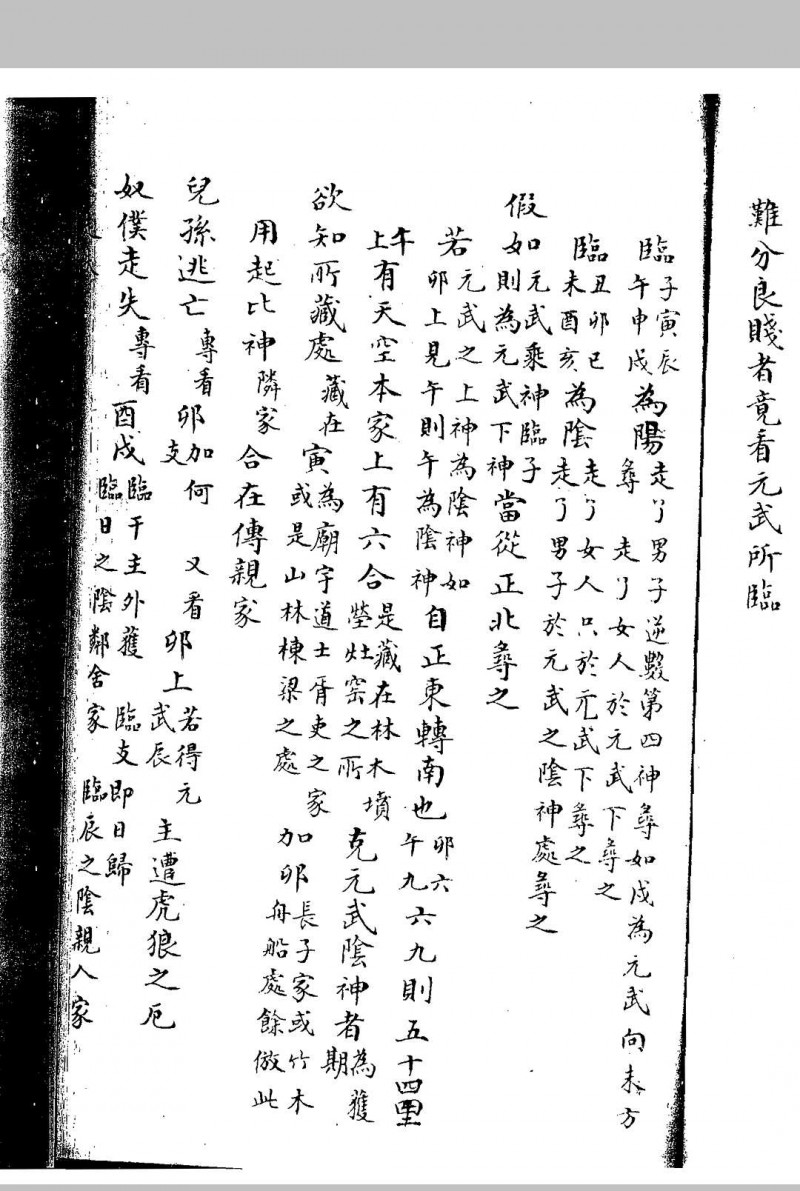 難分良賤者竟看元武所臨
臨子寅辰午申戌為陽走了男子逆數第四神尋如戌為元武向未方尋走了女人於元武下尋之
臨丑卯巳未酉亥為陰走了女人只於元武下尋之走了男子於元武之陰神處尋之
假如元武乘神臨子則為元武下神當從正北尋之
若元武之上神為陰神如卯上見午則午為陰神自正東轉南也卯六午九六九則五十四里
午上有天空本家上有六合是藏在林木墳塋灶窑之所克元武陰神者為獲期
欲知所藏處藏在寅為廟宇道士胥吏之家或是山林棟梁之處加卯長子家或竹木舟船處餘倣此
用起比神隣家合在傳親家
兒孫逃亡專看卯加何支又看卯上若得元武辰主遭虎狼之厄
奴僕走失專看酉戌臨干主外獲臨支即日歸臨日之陰鄰舍家臨辰之陰親人家